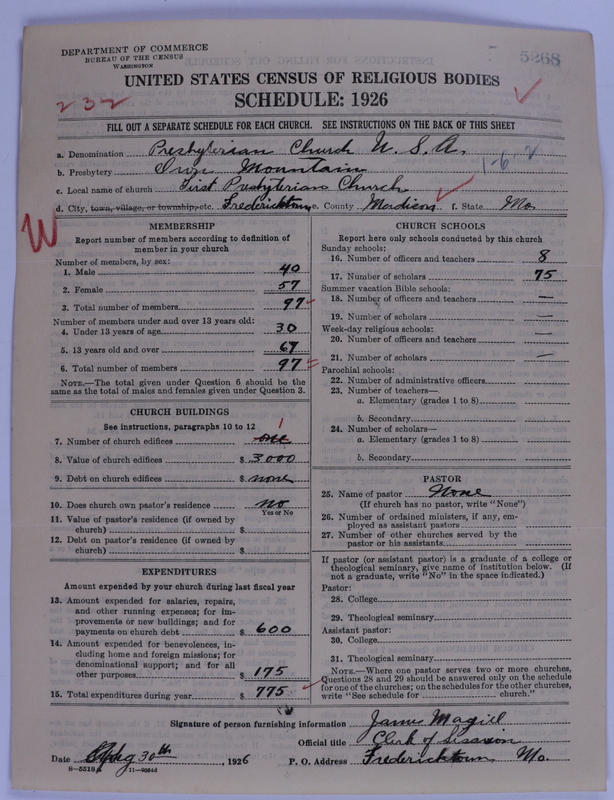 DEPARTMENT OF COMMERCE
BUREAU OF THE CENSUS
WASHINGTON
5268
UNITED STATES CENSUS OF RELIGIOUS BODIES
232
SCHEDULE: 1926
FILL OUT A SEPARATE SCHEDULE FOR EACH CHURCH. SEE INSTRUCTIONS ON THE BACK OF THIS SHEET
a. Denomination Presbyterian Church U. S. A.
b. Presbytery Iron Mountain 1-6-2
c. Local name of church First Presbyterian Church
d. City, town, village, or township, etc. Fredericktown e. County Madison f. State Mo.
W
MEMBERSHIP
Report number of members according to definition of member in your church
Number of members, by sex:
1. Male 40
2. Female 57
3. Total number of members 97
Number of members under and over 13 years old:
4. Under 13 years of age 30
5. 13 years old and over 67
6. Total number of members 97
NOTE.—The total given under Question 6 should be the same as the total of males and females given under Question 3.
CHURCH BUILDINGS
See instructions, paragraphs 10 to 12
1
7. Number of church edifices one
8. Value of church edifices $ 3000
9. Debt on church edifices $ none
10. Does church own pastor's residence no
Yes or No
11. Value of pastor's residence (if owned by church) $
12. Debt on pastor's residence (if owned by church) $
EXPENDITURES
Amount expended by your church during last fiscal year
13. Amount expended for salaries, repairs, and other running expenses; for improvements or new buildings; and for payments on church debt $ 600
14. Amount expended for benevolences, including home and foreign missions; for denominational support; and for all other purposes $ 175
15. Total expenditures during year $ 775
CHURCH SCHOOLS
Report here only schools conducted by this church
Sunday schools:
16. Number of officers and teachers 8
17. Number of scholars 75
Summer vacation Bible schools:
18. Number of officers and teachers —
19. Number of scholars —
Week-day religious schools:
20. Number of officers and teachers —
21. Number of scholars —
Parochial schools:
22. Number of administrative officers
23. Number of teachers—
a. Elementary (grades 1 to 8)
b. Secondary
24. Number of scholars—
a. Elementary (grades 1 to 8)
b. Secondary
PASTOR
25. Name of pastor None
(If church has no pastor, write "None")
26. Number of ordained ministers, if any, employed as assistant pastors
27. Number of other churches served by the pastor or his assistants
If pastor (or assistant pastor) is a graduate of a college or theological seminary, give name of institution below. (If not a graduate, write "No" in the space indicated.)
Pastor:
28. College
29. Theological seminary
Assistant pastor:
30. College
31. Theological seminary
NOTE.—Where one pastor serves two or more churches, Questions 28 and 29 should be answered only on the schedule for one of the churches; on the schedules for the other churches, write "See schedule for church."
Signature of person furnishing information James Magill
Official title Clerk of Session
Date 30th, 1926 P. O. Address Fredericktown, Mo.